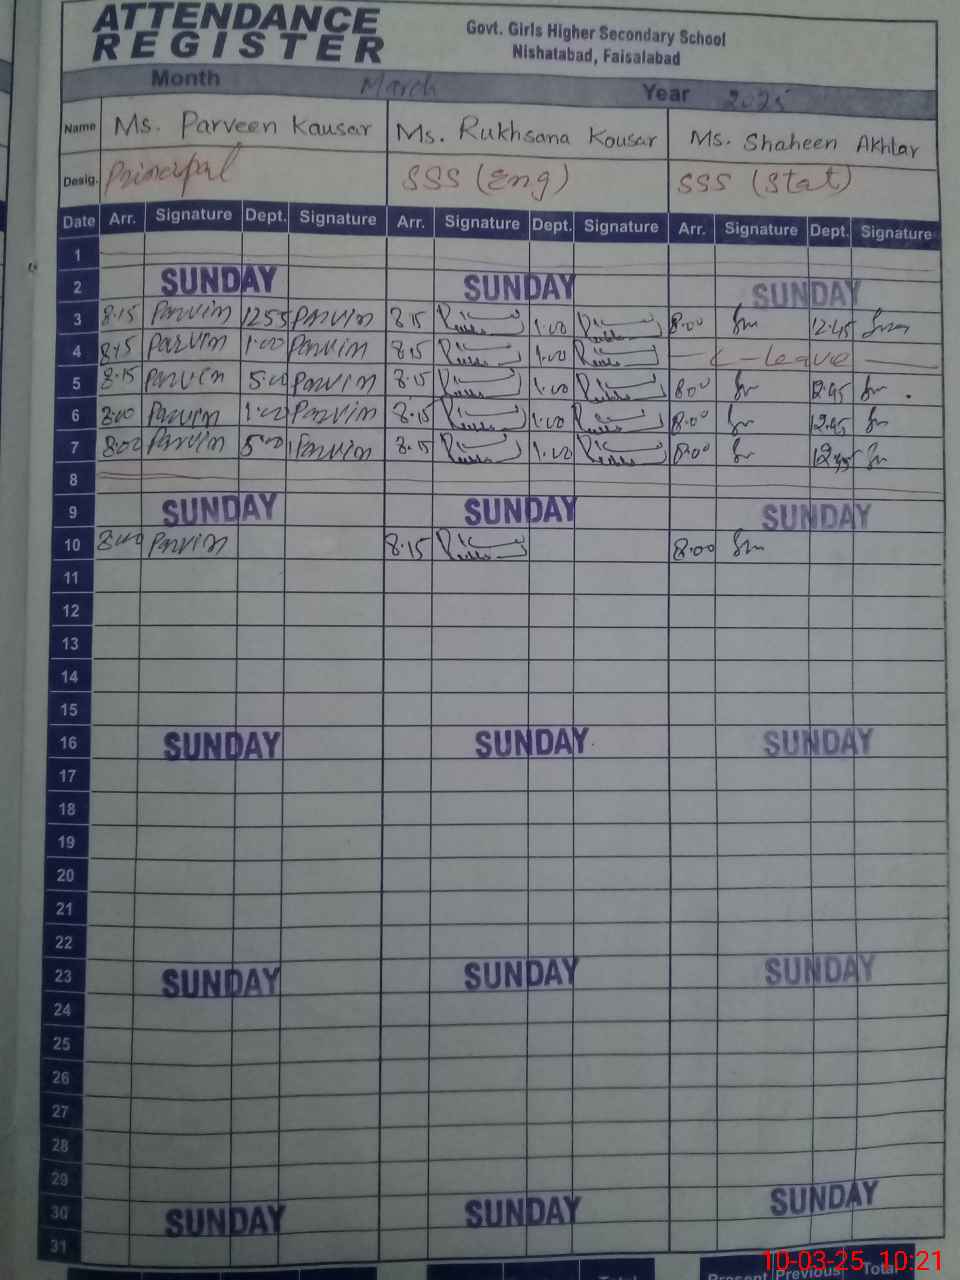 ATTENDANCE
REGISTER
Govt. Girls Higher Secondary School
Nishatabad, Faisalabad
Month March Year 2025
Name Ms. Parveen Kausar Ms. Rukhsana Kousar Ms. Shaheen Akhtar
Desig. Principal SSS (Eng) SSS (Stat)
Date Arr. Signature Dept. Signature Arr. Signature Dept. Signature Arr. Signature Dept. Signature
1
2 SUNDAY SUNDAY SUNDAY
3 8.15 Parvin 1255 Parvin 8.15 1.00 8.00 12.45
4 8.15 Parvin 1.00 Parvin 8.15 1.00 C-Leave
5 8.15 Parvin 5.00 Parvin 8.15 1.00 8.00 12.45
6 8.00 Parvin 1.00 Parvin 8.15 1.00 8.00 12.45
7 8.00 Parvin 5.00 Parvin 8.15 1.00 8.00 12.45
8
9 SUNDAY SUNDAY SUNDAY
10 8.00 Parvin 8.15 8.00
11
12
13
14
15
16 SUNDAY SUNDAY SUNDAY
17
18
19
20
21
22
23 SUNDAY SUNDAY SUNDAY
24
25
26
27
28
29
30 SUNDAY SUNDAY SUNDAY
31
Total Present Previous Total
10-03-25 10:21